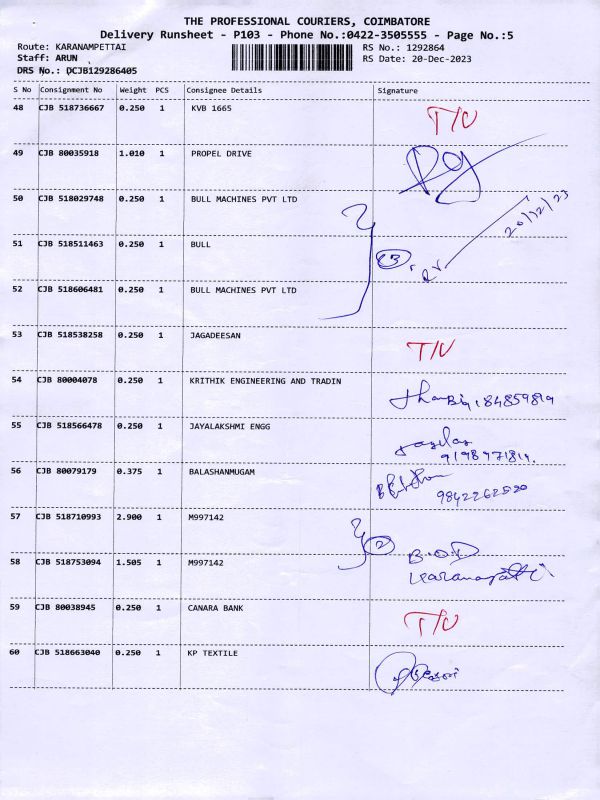 THE PROFESSIONAL COURIERS, COIMBATORE
Delivery Runsheet - P103 - Phone No.:0422-3505555 - Page No.:5
Route: KARANAMPETTAI RS No.: 1292864
Staff: ARUN RS Date: 20-Dec-2023
DRS No.: DCJB129286405
S No Consignment No Weight PCS Consignee Details Signature
48 CJB 518736667 0.250 1 KVB 1665 T/U
49 CJB 80035918 1.010 1 PROPEL DRIVE
50 CJB 518029748 0.250 1 BULL MACHINES PVT LTD
20/12/23
51 CJB 518511463 0.250 1 BULL 3
52 CJB 518606481 0.250 1 BULL MACHINES PVT LTD
53 CJB 518538258 0.250 1 JAGADEESAN T/U
54 CJB 80004078 0.250 1 KRITHIK ENGINEERING AND TRADIN
55 CJB 518566478 0.250 1 JAYALAKSHMI ENGG
56 CJB 80079179 0.375 1 BALASHANMUGAM
9842262520
57 CJB 518710993 2.900 1 M997142 2
58 CJB 518753094 1.505 1 M997142 B.O.D
59 CJB 80038945 0.250 1 CANARA BANK T/U
60 CJB 518663040 0.250 1 KP TEXTILE